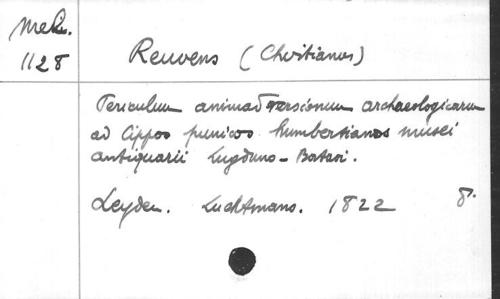 Meh.
1128
Reuvens (Christianus)
Periculum animadversionum archaeologicarum
ad Cippos punicos humbertianos musei
antiquarii Lugduno-Batavi.
Leyden. Luchtmans. 1822 8.